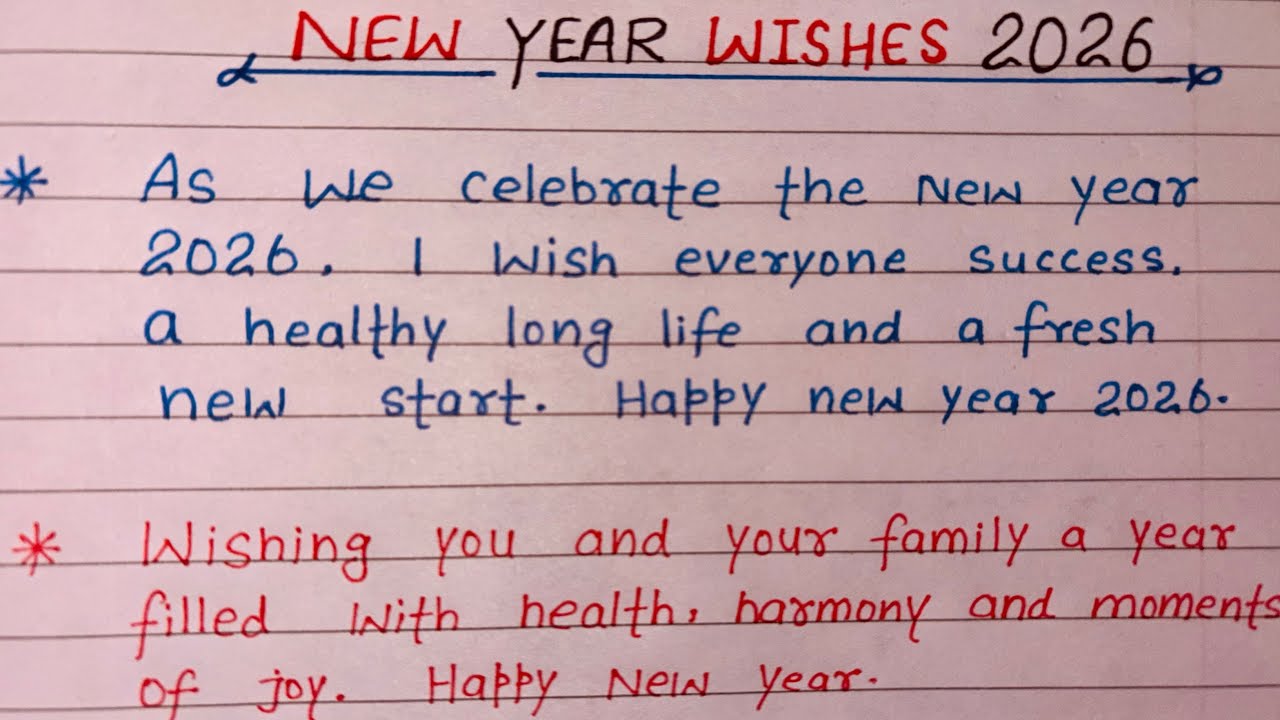 NEW YEAR WISHES 2026
* As we celebrate the New year
2026. I wish everyone success.
a healthy long life and a fresh
new start. Happy new year 2026.
* Wishing you and your family a year
filled with health, harmony and moments
of joy. Happy New year.